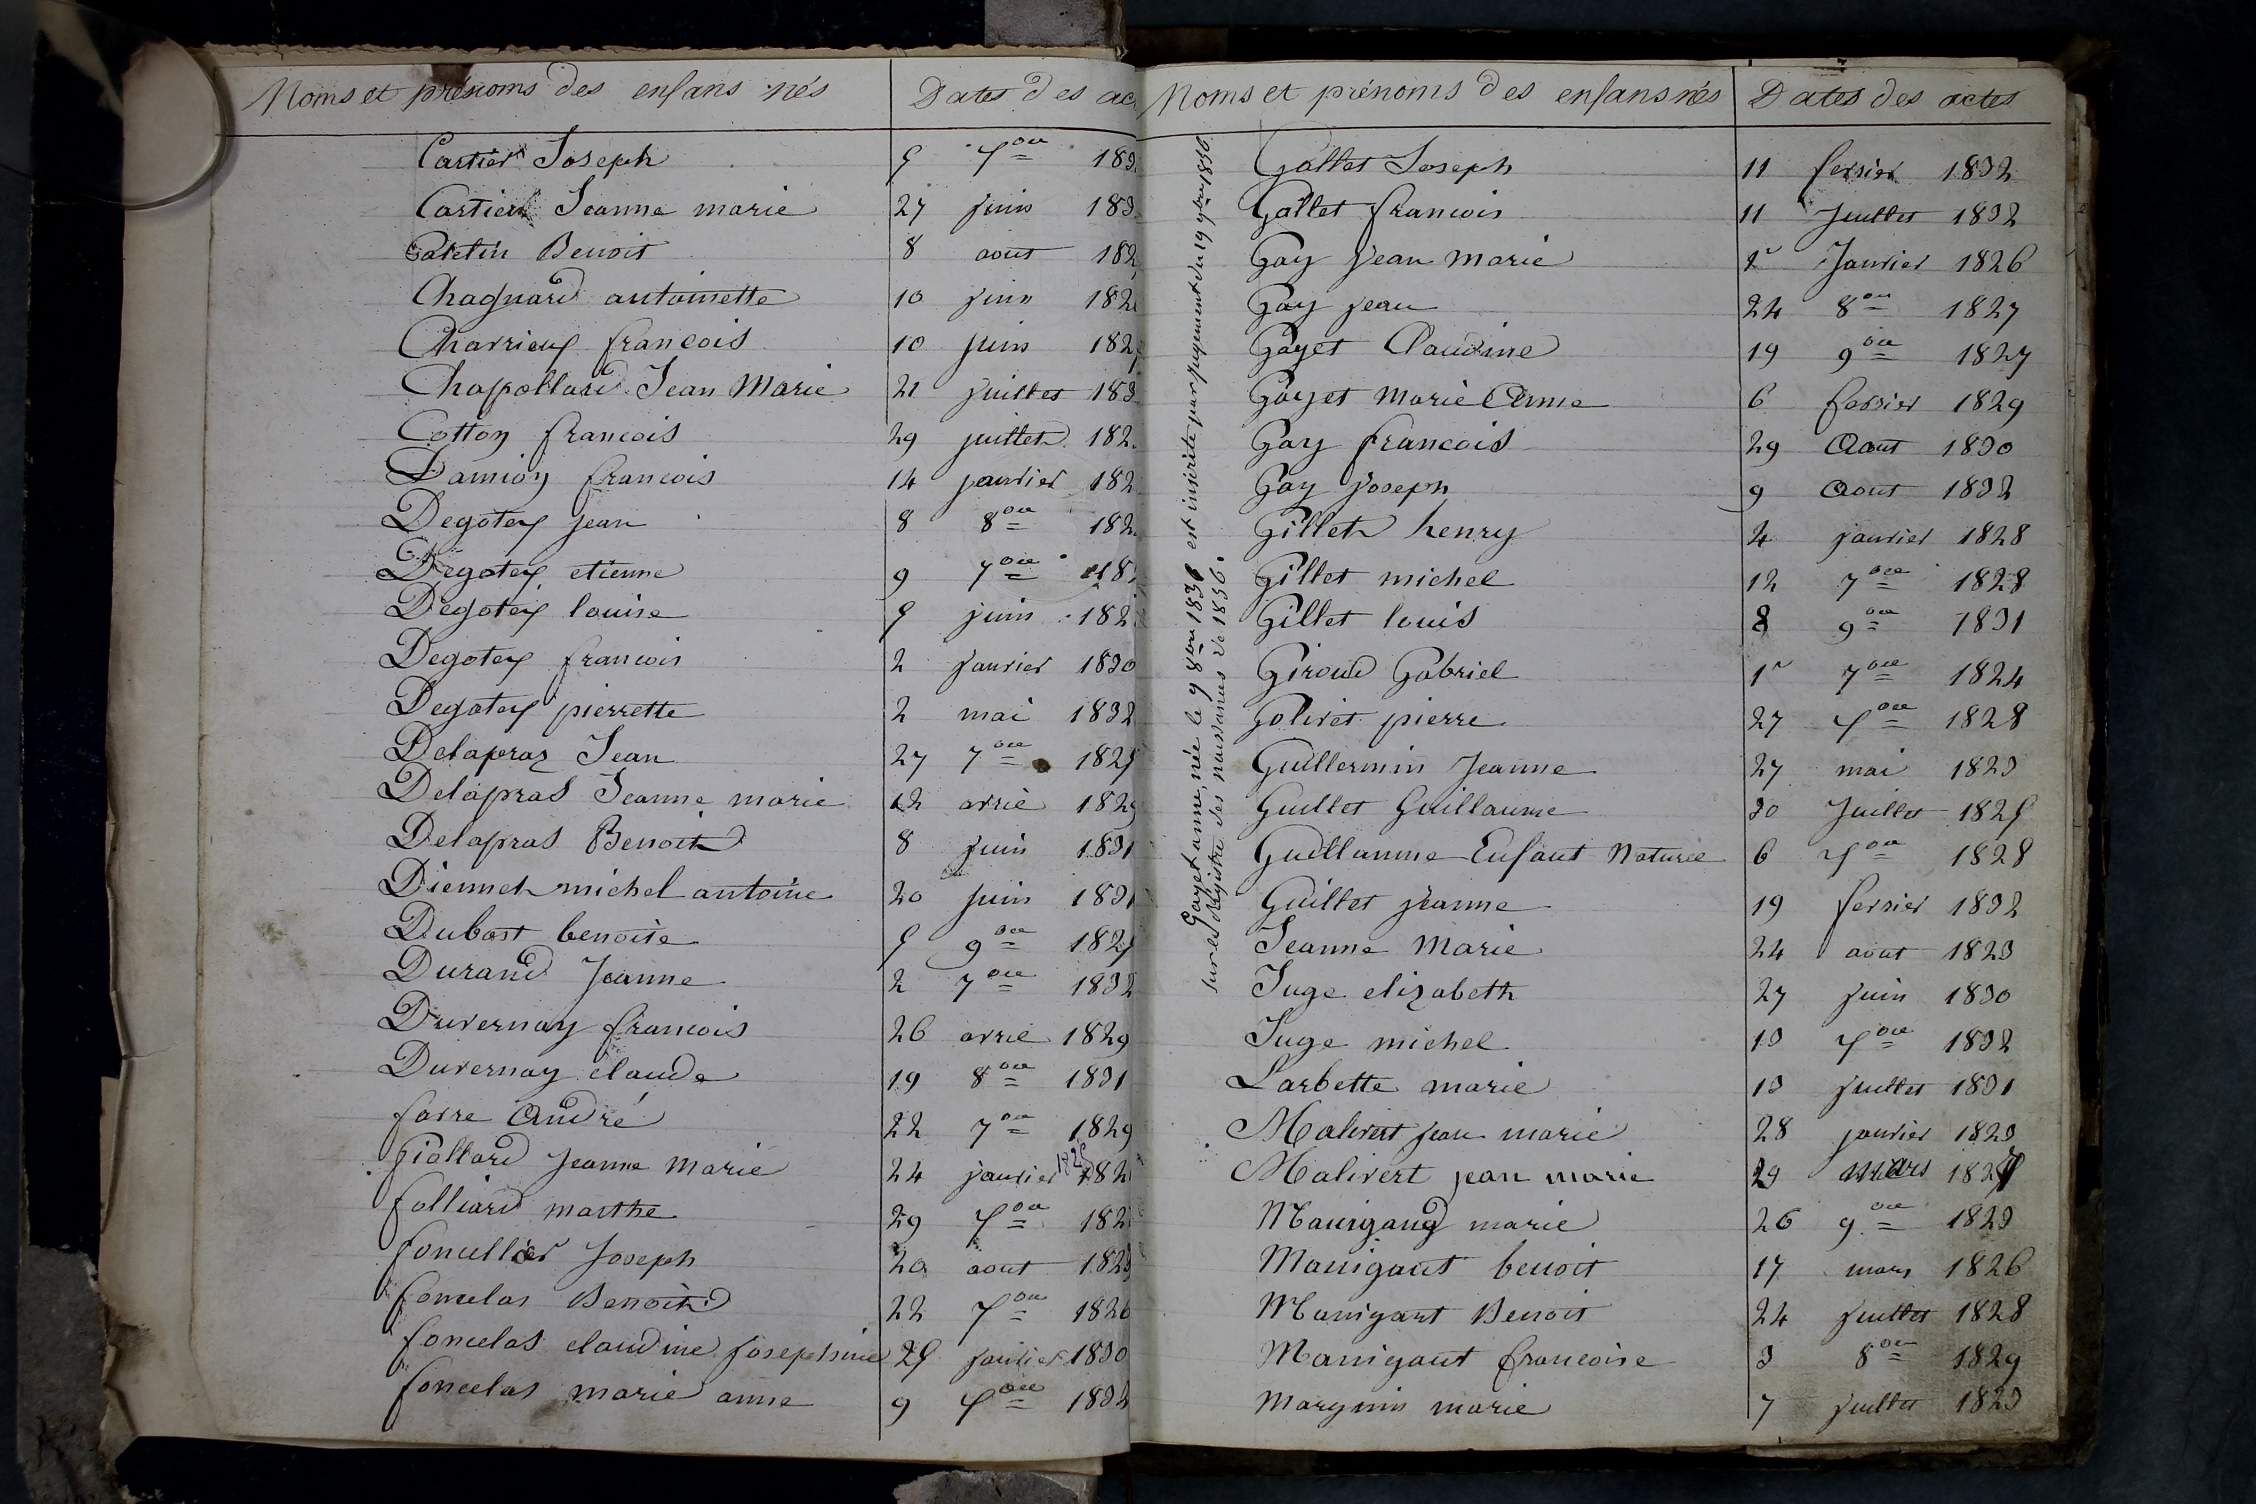 Noms et prénoms des enfans nés Dates des ac
Cartier Joseph 5 Xbre 183
Cartier Jeanne marie 27 juin 183
Catelin Benoit 8 aout 182
Chagnard antoinette 10 juin 182
Charrieux francois 10 juin 182
Chapollard Jean Marie 21 juillet 183
Cotton francois 29 juillet 182
Damion francois 14 janvier 182
Degotex jean 8 8bre 182
Degotex etienne 9 7bre 18
Degotex louise 5 juin 182
Degotex francois 2 janvier 1830
Degotex pierrette 2 mai 1832
Delapraz Jean 27 7bre 1825
Delapras Jeanne marie 12 avril 1829
Delapras Benoit 8 juin 1831
Diennet michel antoine 20 juin 1831
Dubost benoite 5 9bre 1825
Durand Jeanne 2 7bre 1832
Duvernay francois 26 avril 1829
Duvernay claude 19 8bre 1831
favre André 22 7bre 1829
fiallard Jeanne Marie 24 janvier 1825 182
folliard marthe 29 Xbre 182
foncellier Joseph 20 aout 1823
foncelas Benoit 22 Xbre 1826
foncelas claudine josephine 25 janvier 1830
foncelas marie anne 9 Xbre 1832
Noms et prénoms des enfans nés Dates des actes
Gayet anne, née le 9 8bre 1836 est inscrite par jugement du 19 9bre 1856
sur le Régistre des naissances de 1856.
Gallet Joseph 11 fevrier 1832
Gallet francois 11 Juillet 1832
Gay Jean Marie 1r Janvier 1826
Gay jean 24 8bre 1827
Gayet Claudine 19 9bre 1827
Gayet Marie Anne 6 fevrier 1829
Gay francois 29 Aout 1830
Gay joseph 9 Aout 1832
Gillet henry 4 janvier 1828
Gillet michel 12 7bre 1828
Gillet louis 8 9bre 1831
Giroud Gabriel 1r 7bre 1824
Golivet pierre 27 Xbre 1828
Guillermin Jeanne 27 mai 1823
Guillet Guillaume 30 Juillet 1825
Guillaume Enfant Naturel 6 Xbre 1828
Guillet jeanne 19 fevrier 1832
Jeanne Marie 24 aout 1823
Juge elizabeth 27 juin 1830
Juge michel 13 Xbre 1832
Larbette marie 13 juillet 1831
Malivert jean marie 28 janvier 1823
Malivert jean marie 29 mars 1827
Manigand marie 26 9bre 1823
Manigant benoit 17 mars 1826
Manigant Benoit 24 juillet 1828
Manigant francoise 3 8bre 1829
Marginin marie 7 juillet 1823